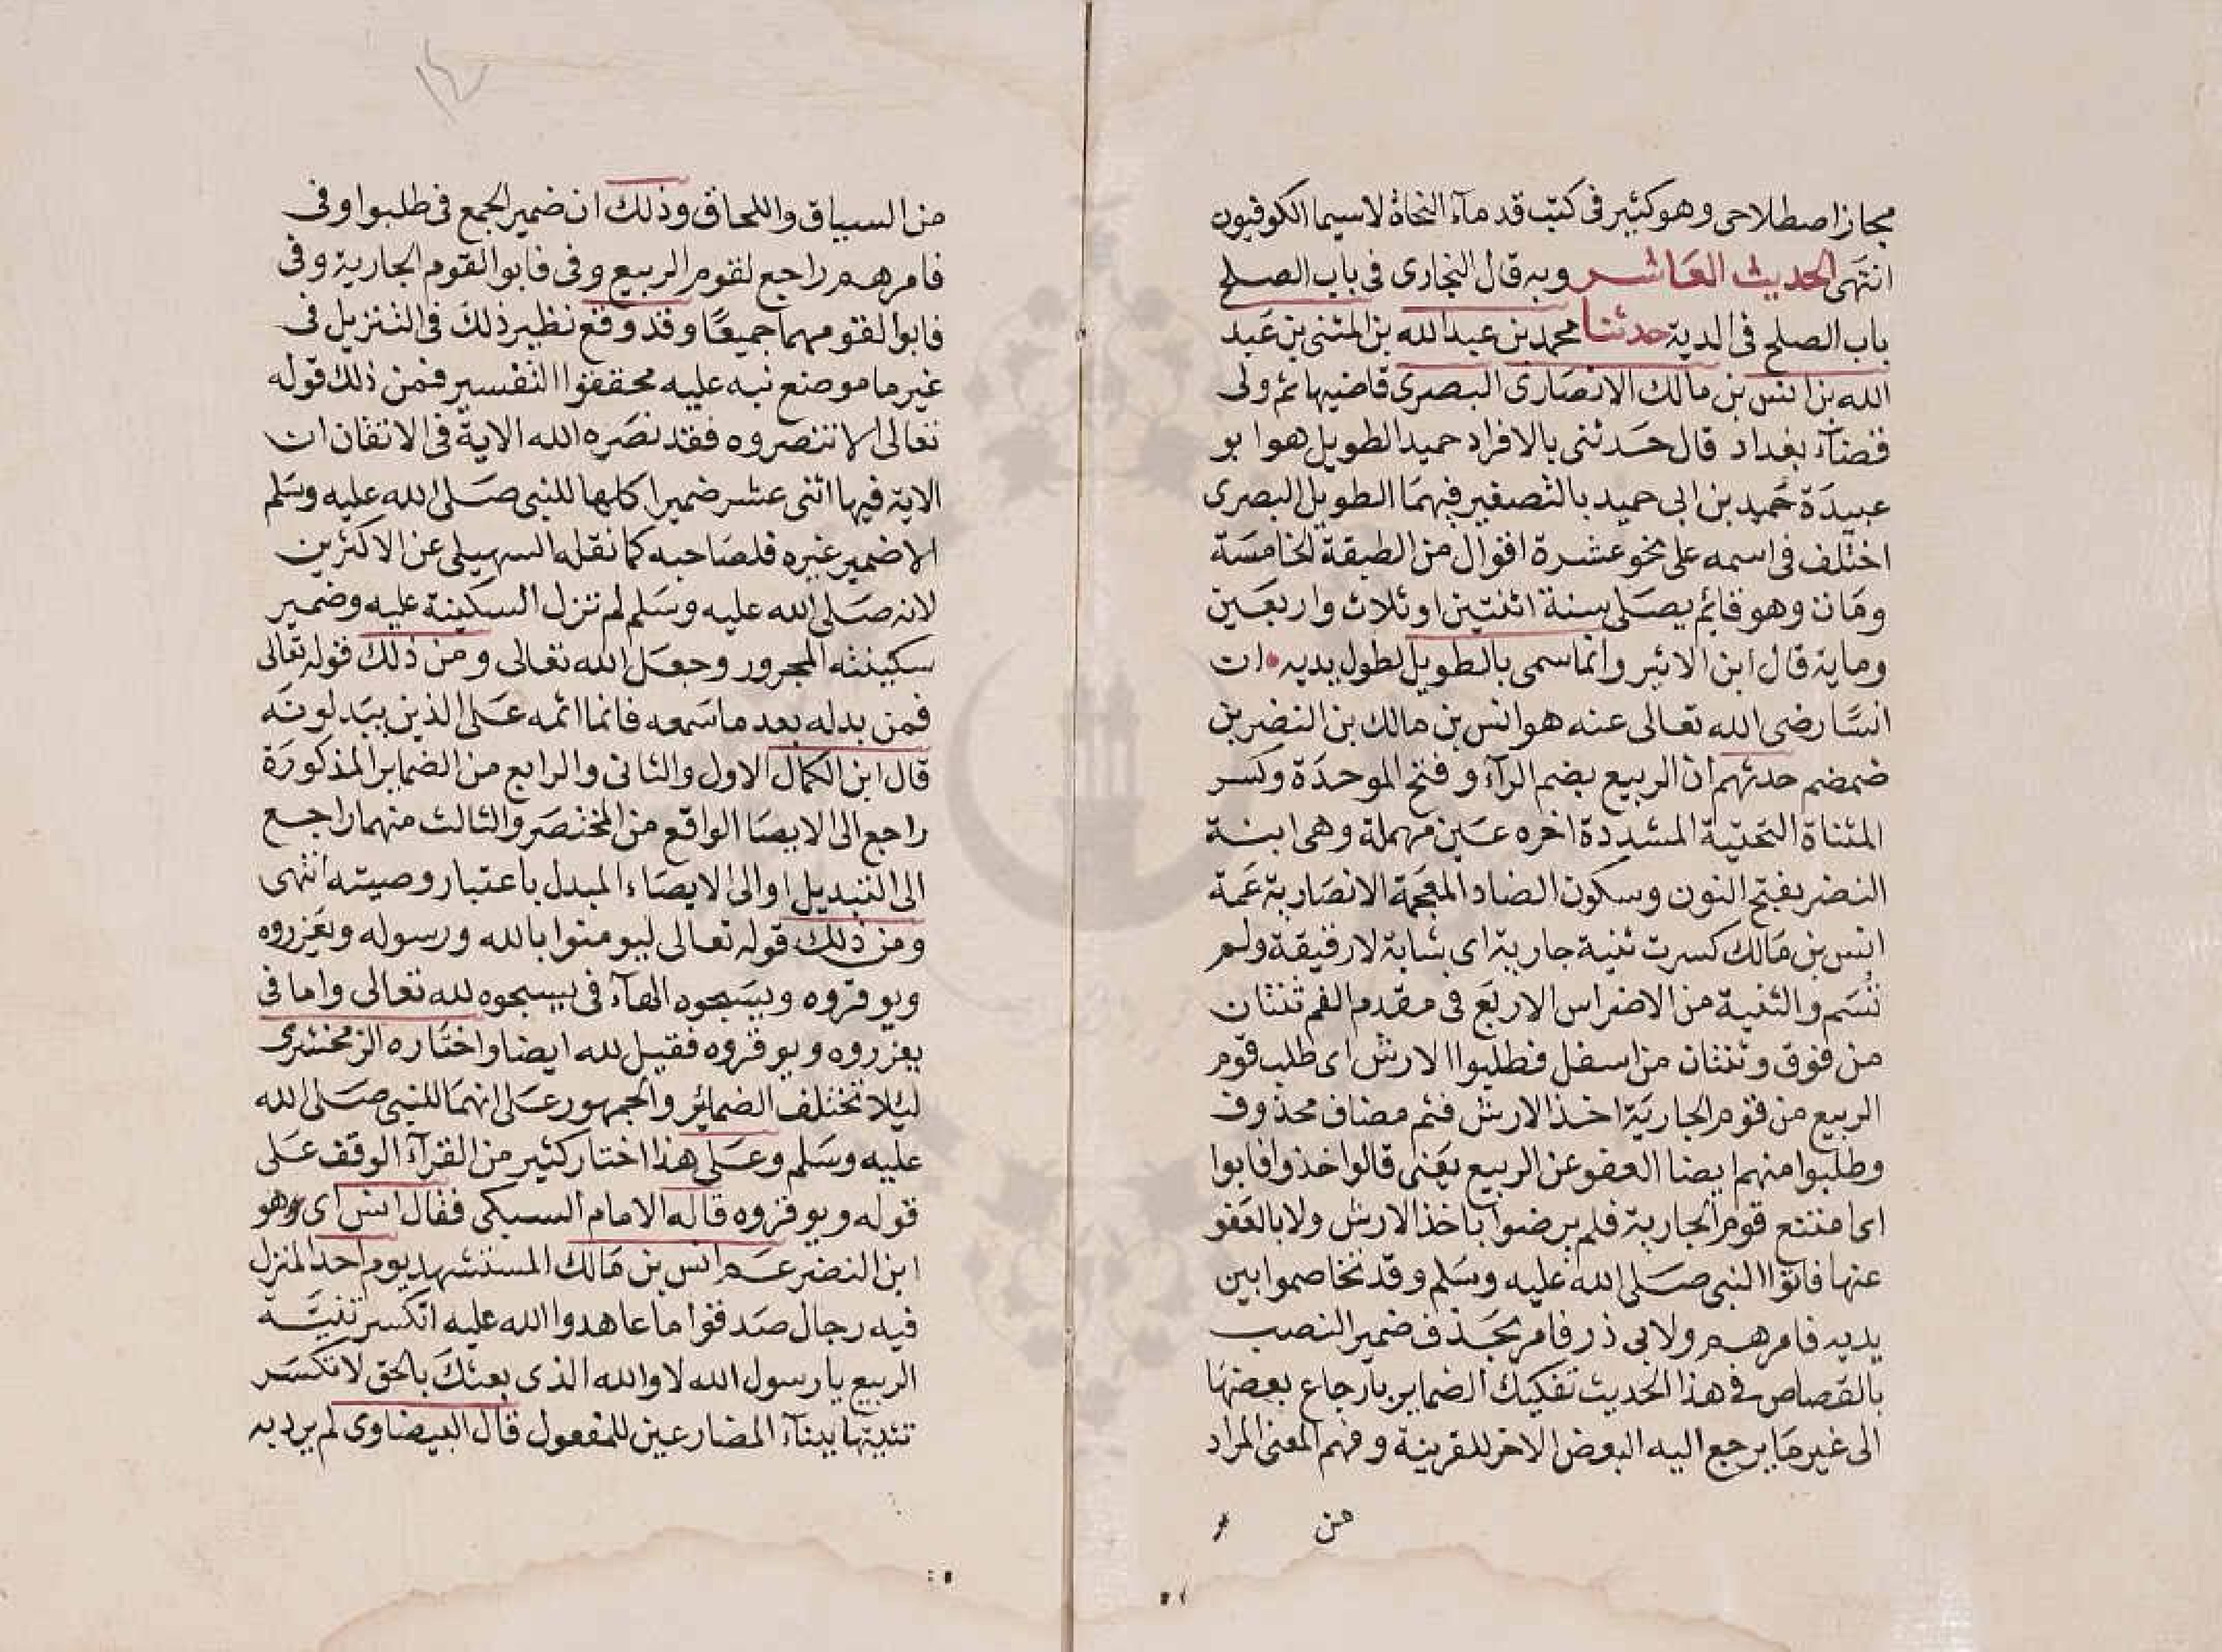 مجاز اصطلاحى وهو كثير فى كتب قدمآء النحاة لاسيما الكوفيون
انتهى الحديث العاشر وبه قال البخارى فى باب الصلح
باب الصلح فى الدية حدثنا محمد بن عبد الله بن المثنى بن عبد
الله بن انس بن مالك الانصارى البصرى قاضيها ثم ولى
قضآء بغداد قال حدثنى بالافراد حميد الطويل هو ابو
عبيدة حميد بن ابى حميد بالتصغير فيهما الطويل البصرى
اختلف فى اسمه على نحو عشرة اقوال من الطبقة الخامسة
ومات وهو قايم يصلى سنة اثنتين او ثلاث واربعين
وماية قال ابن الاثير وانما سمى بالطويل لطول يديه ان
انسا رضى الله تعالى عنه هو انس بن مالك بن النضر بن
ضمضم حدثهم ان الربيع بضم الرآء وفتح الموحدة وكسر
المثناة التحتية المشددة اخره عين مهملة وهى ابنة
النضر بفتح النون وسكون الضاد المعجمة الانصارية عمة
انس بن مالك كسرت ثنية جارية اى شابة لا رقيقة ولم
تسم والثنية من الاضراس الاربع فى مقدم الفم ثنتان
من فوق وثنتان من اسفل فطلبوا الارش اى طلب قوم
الربيع من قوم الجارية اخذ الارش فثم مضاف محذوف
وطلبوا منهم ايضا العفو عن الربيع يعنى قالوا خذوا فابوا
اى امتنع قوم الجارية فلم يرضوا باخذ الارش ولا بالعفو
عنها فاتوا النبى صلى الله عليه وسلم وقد تخاصموا بين
يديه فامرهم ولابى ذر فامر بحذف ضمير النصب
بالقصاص فى هذا الحديث تفكيك الضماير بارجاع بعضها
الى غير ما يرجع اليه البعض الاخر للقرينة وفهم المعنى المراد
من
من السياق واللحاق وذلك ان ضمير الجمع فى طلبوا وفى
فامرهم راجع لقوم الربيع وفى فابوا لقوم الجارية وفى
فابوا لقومهما جميعا وقد وقع نظير ذلك فى التنزيل فى
غير ما موضع نبه عليه محققوا التفسير فمن ذلك قوله
تعالى الا تنصروه فقد نصره الله الاية فى الاتقان ان
الاية فيها اثنى عشر ضميرا كلها للنبى صلى الله عليه وسلم
الا ضمير عليه فلصاحبه كما نقله السهيلى عن الاكثرين
لانه صلى الله عليه وسلم لم تنزل السكينة عليه وضمير
سكينته المجرور وجعل الله تعالى ومن ذلك قوله تعالى
فمن بدله بعد ما سمعه فانما اثمه على الذين يبدلونه
قال ابن الكمال الاول والثانى والرابع من الضماير المذكورة
راجع الى الايصا الواقع من المختصر والثالث منهما راجع
الى التبديل او الى الايصاء المبدل باعتبار وصيته انتهى
ومن ذلك قوله تعالى ليومنوا بالله ورسوله وتعزروه
ويوقروه ويسبحوه الهآء فى يسبحوه لله تعالى واما فى
يعزروه ويوقروه فقيل لله ايضا واختاره الزمخشرى
ليلا تختلف الضمائر والجمهور على انهما للنبى صلى الله
عليه وسلم وعلى هذا اختار كثير من القرآء الوقف على
قوله ويوقروه قاله الامام السبكى فقال انس اى وهو
ابن النضر عم انس بن مالك المستشهد يوم احد المنزل
فيه رجال صدقوا ما عاهدوا الله عليه اتكسر ثنية
الربيع يا رسول الله لا والله الذى بعثك بالحق لا تكسر
ثنيتها ببنآء المضارعين للمفعول قال البيضاوى لم يرد به